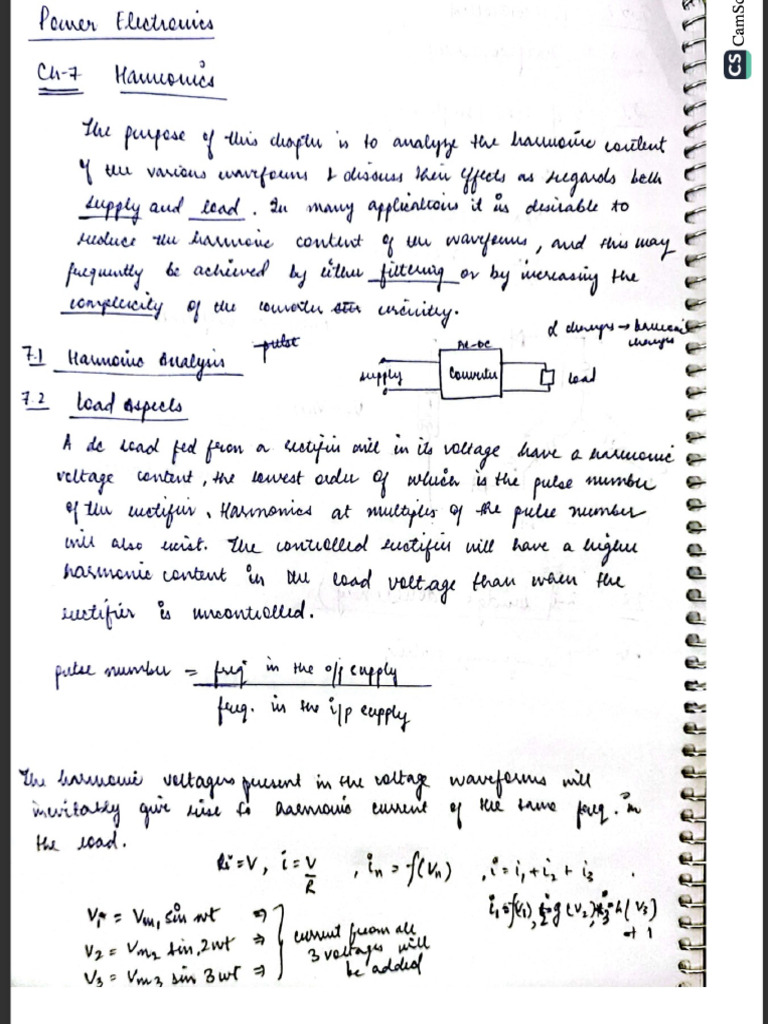 Power Electronics
CS CamSc
Ch-7 Harmonics
The purpose of this chapter is to analyze the harmonic content
of the various waveforms & discuss their effects as regards both
supply and load. In many applications it is desirable to
reduce the harmonic content of the waveforms, and this may
frequently be achieved by either filtering or by increasing the
complexity of the converter circuitry.
α changes → harmonic
changes
7.1 Harmonic Analysis pulse
AC-DC
supply Converter load
7.2 Load Aspects
A dc load fed from a rectifier will in its voltage have a harmonic
voltage content, the lowest order of which is the pulse number
of the rectifier. Harmonics at multiples of the pulse number
will also exist. The controlled rectifier will have a higher
harmonic content in the load voltage than when the
rectifier is uncontrolled.
pulse number = freq in the o/p supply
freq. in the i/p supply
The harmonic voltages present in the voltage waveforms will
inevitably give rise to harmonic current of the same freq. in
the load.
Ri=V, i=V/R , in = f(Vn) , i = i1 + i2 + i3
V1 = Vm1 sin wt ⇒
V2 = Vm2 sin 2wt ⇒
V3 = Vm3 sin 3wt ⇒
current from all
3 voltages will
be added